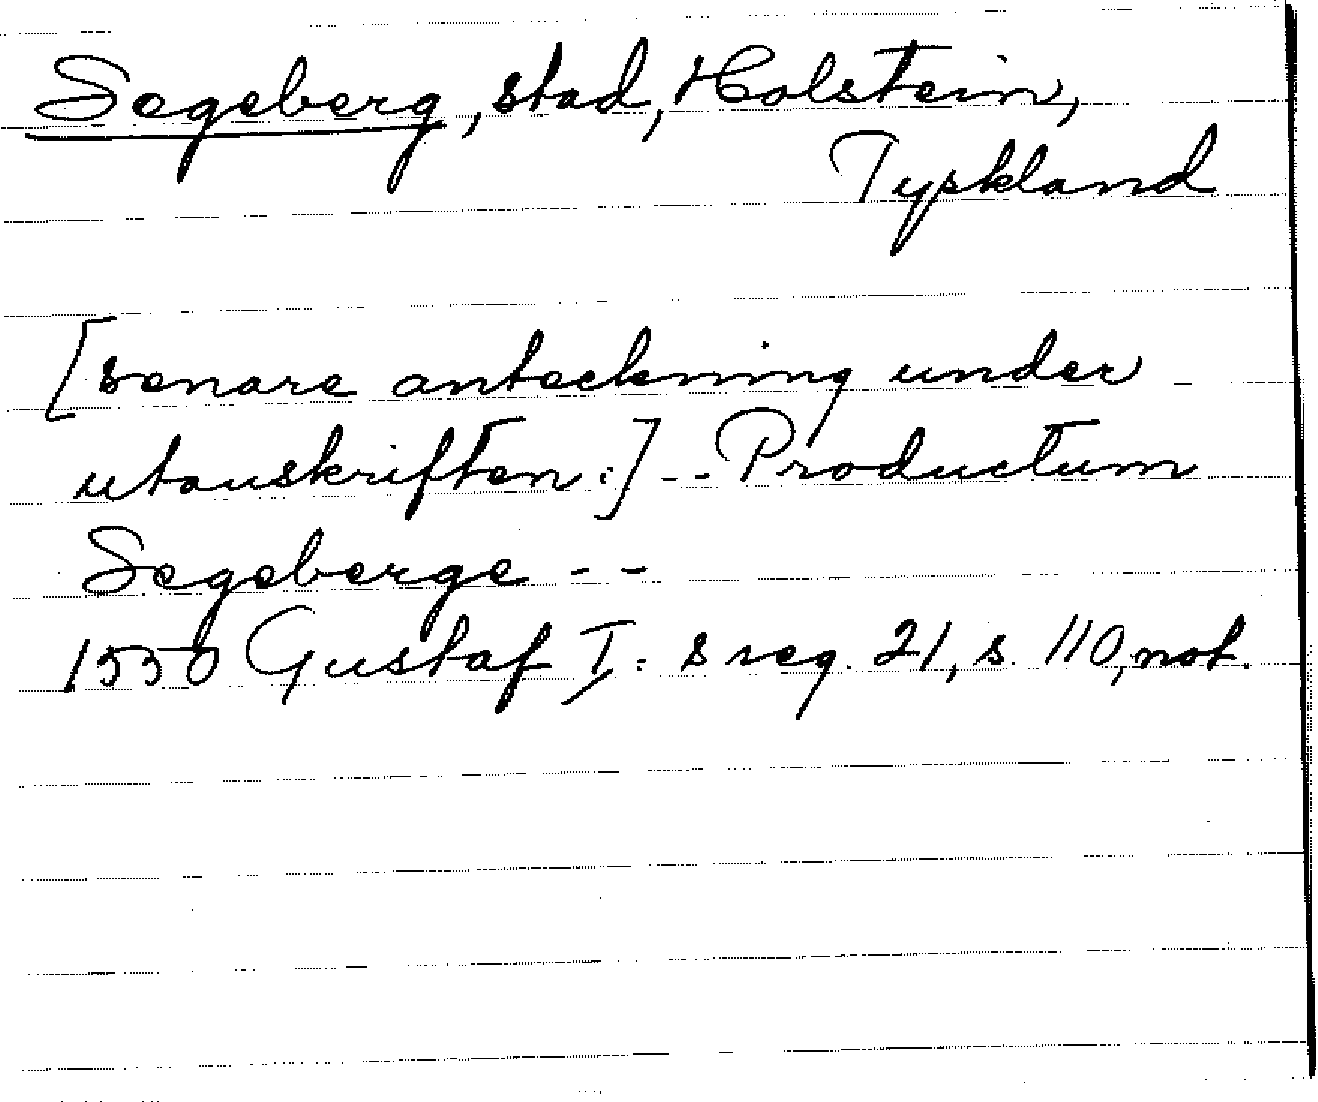 Segeberg, stad, Holstein,
Tyskland
[senare anteckning under
utanskriften:] -- Productum
Segeberge --
1550 Gustaf I:s reg. 21, s. 110, not.